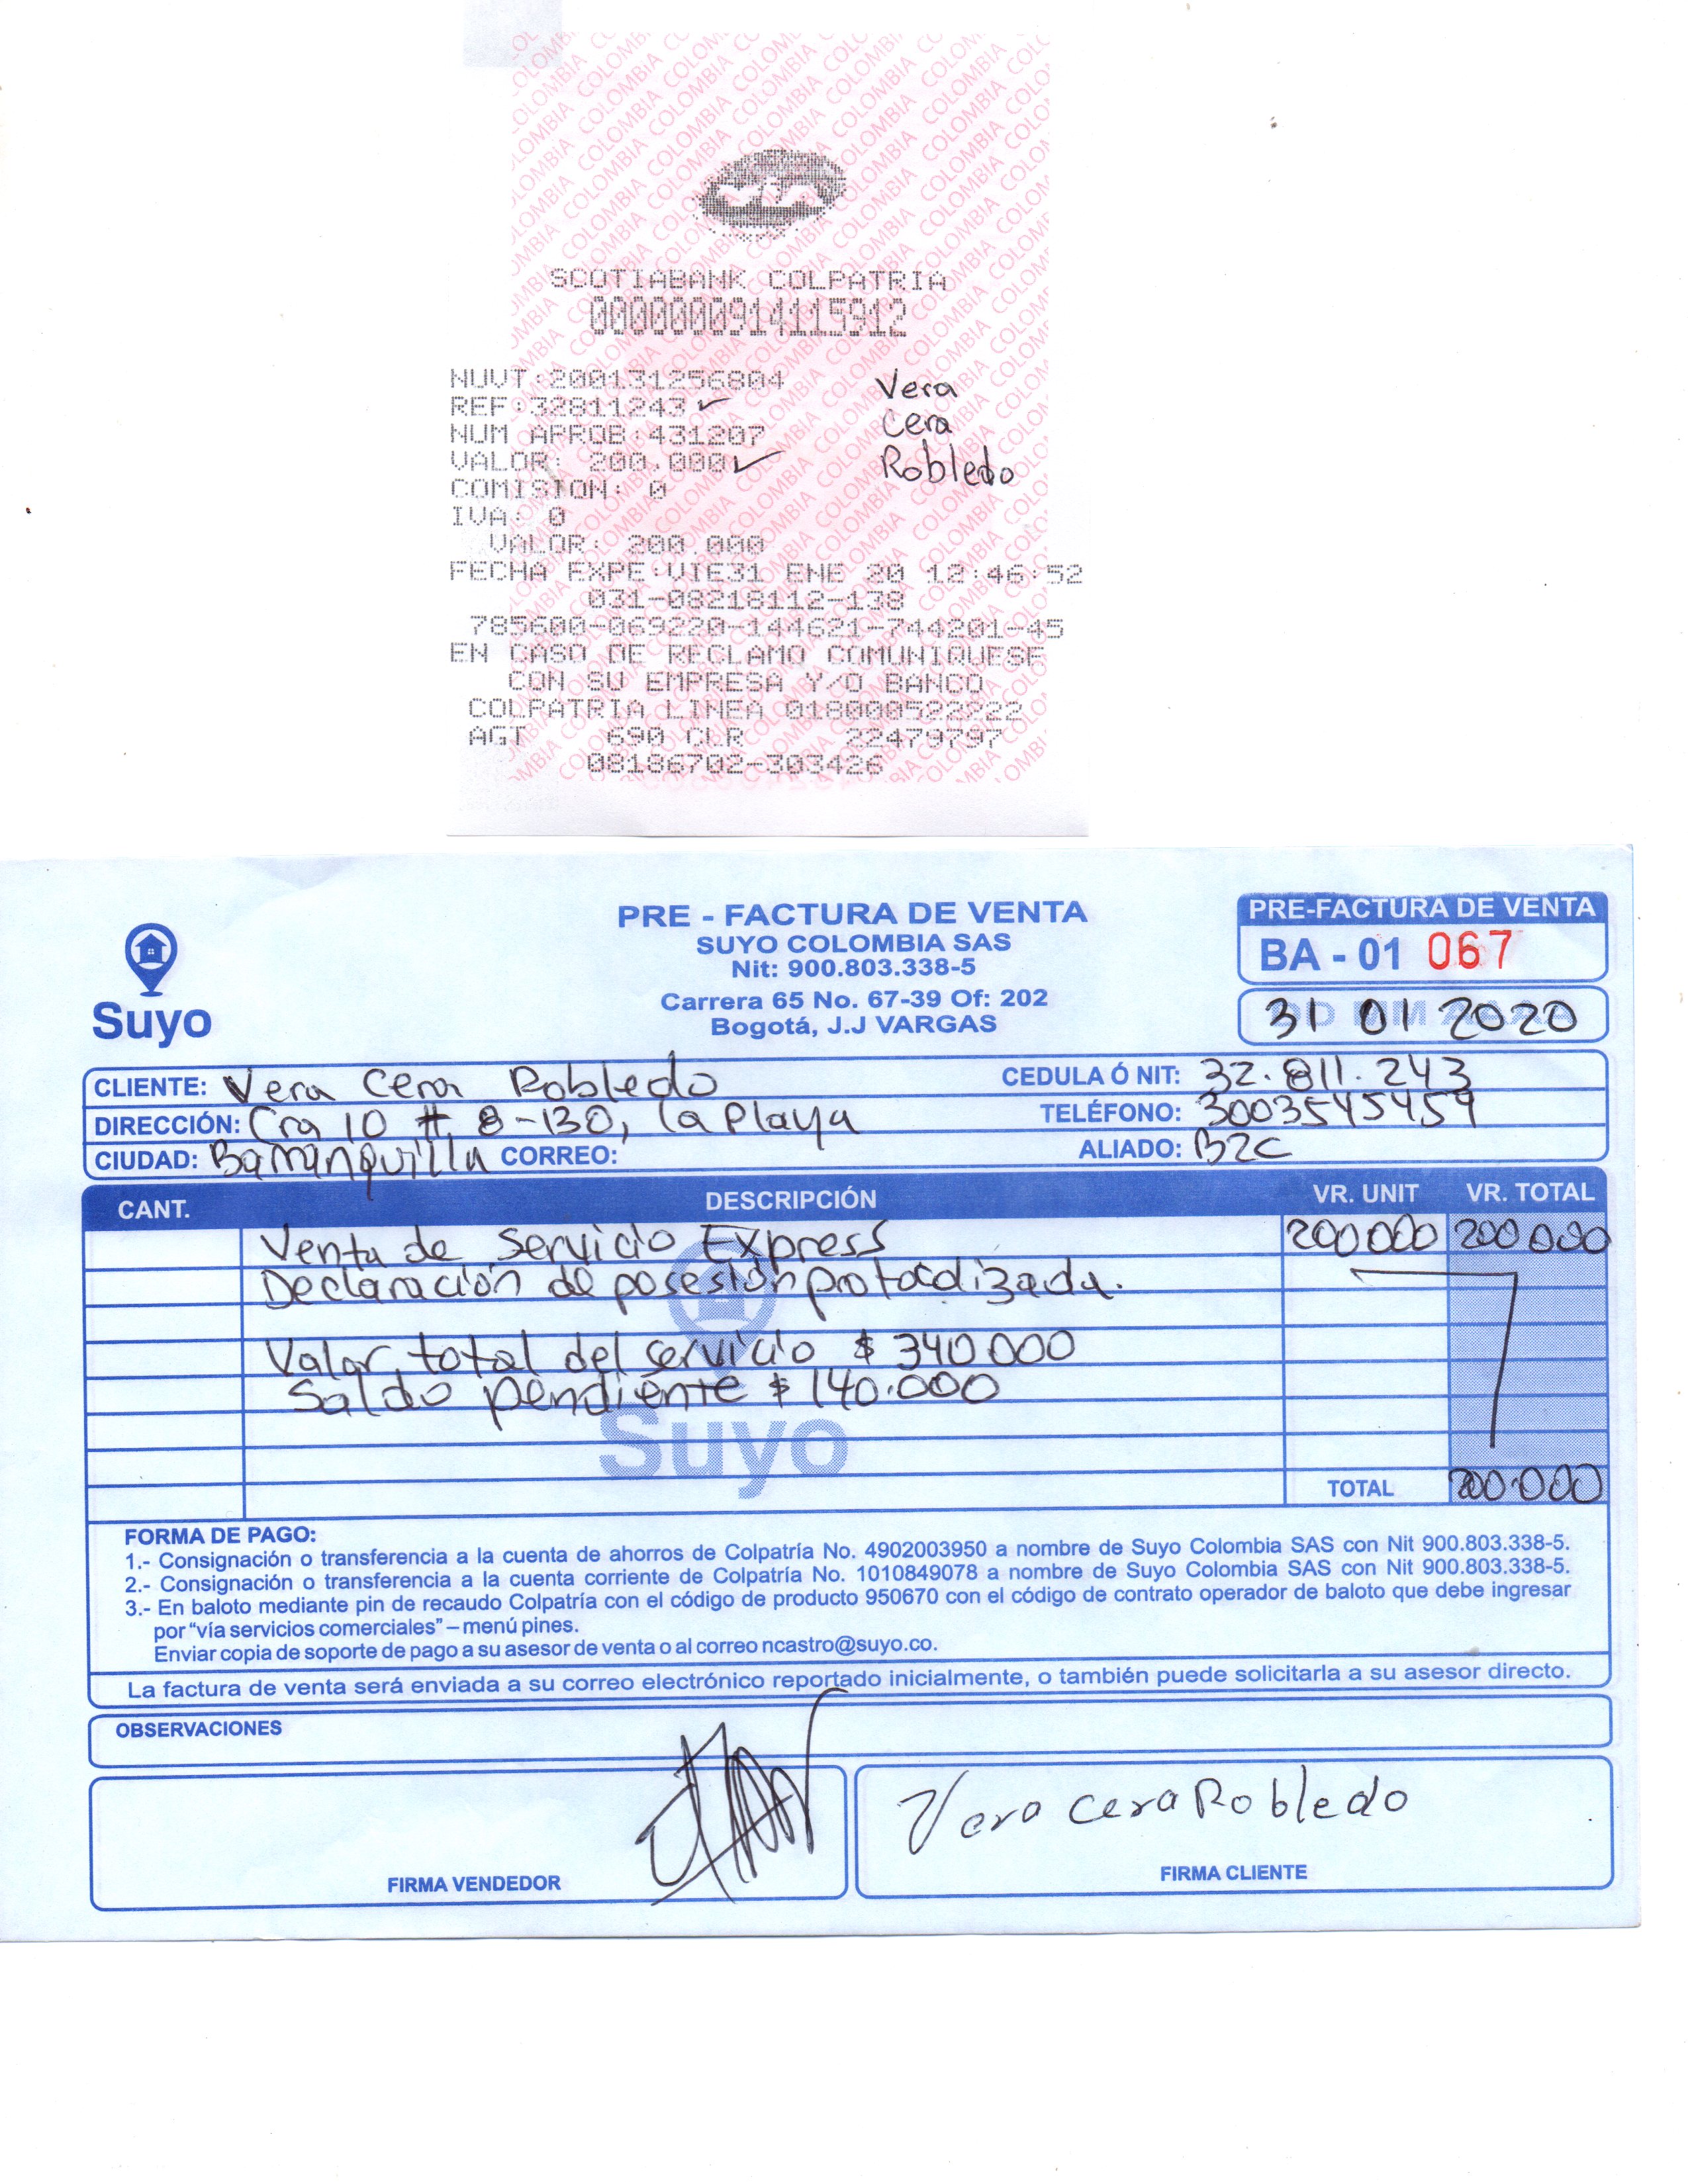 SCOTIABANK COLPATRIA
0000000914115912
NUVT:200131256804
REF:32811243 ✓
NUM APROB:431207
VALOR: 200.000 ✓
COMISION: 0
IVA: 0
VALOR: 200.000
Vera
Cera
Robledo
FECHA EXPE:VIE31 ENE 20 12:46:52
031-08218112-138
785600-069220-144621-744201-45
EN CASO DE RECLAMO COMUNIQUESE
CON SU EMPRESA Y/O BANCO
COLPATRIA LINEA 018000522222
AGT 690 CLR 22479797
08186702-303426
PRE - FACTURA DE VENTA
SUYO COLOMBIA SAS
Nit: 900.803.338-5
Carrera 65 No. 67-39 Of: 202
Bogotá, J.J VARGAS
Suyo
PRE-FACTURA DE VENTA
BA - 01 067
31 01 2020
CLIENTE: Vera Cera Robledo CEDULA Ó NIT: 32.811.243
DIRECCIÓN: Cra 10 # 8-130, la Playa TELÉFONO: 3003545459
CIUDAD: Barranquilla CORREO: ALIADO: B2C
CANT. DESCRIPCIÓN VR. UNIT VR. TOTAL
Venta de Servicio Express 200000 200000
Declaración de posesión protocolizada.
Valor total del servicio $ 340000
Saldo pendiente $ 140.000
Suyo
TOTAL 200.000
FORMA DE PAGO:
1.- Consignación o transferencia a la cuenta de ahorros de Colpatría No. 4902003950 a nombre de Suyo Colombia SAS con Nit 900.803.338-5.
2.- Consignación o transferencia a la cuenta corriente de Colpatría No. 1010849078 a nombre de Suyo Colombia SAS con Nit 900.803.338-5.
3.- En baloto mediante pin de recaudo Colpatría con el código de producto 950670 con el código de contrato operador de baloto que debe ingresar
por “vía servicios comerciales” – menú pines.
Enviar copia de soporte de pago a su asesor de venta o al correo ncastro@suyo.co.
La factura de venta será enviada a su correo electrónico reportado inicialmente, o también puede solicitarla a su asesor directo.
OBSERVACIONES
Vera Cera Robledo
FIRMA VENDEDOR FIRMA CLIENTE